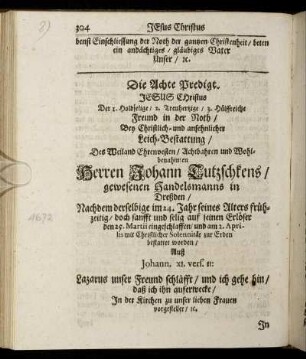 304 JEsus Christus
benst Einschliessung der Noth der gantzen Christenheit / beten
ein andächtiges / gläubiges Vater
Unser / ꝛc.
Die Achte Predigt.
JESUS CHristus
Der 1. Huldselige / 2. Treuhertzige / 3. Hülffreiche
Freund in der Noth /
Bey Christlich- und ansehnlicher
Leich-Bestattung /
Des Weiland Ehrenvesten / Achtbahren und Wohl-
benahmten
Herren Johann Lutzschkens /
gewesenen Handelsmanns in
Dreßden /
Nachdem derselbige im 24. Jahr seines Alters früh-
zeitig / doch sanfft und selig auf seinen Erlöser
den 29. Martii eingeschlaffen / und am 2. Apri-
lis mit Christlicher Solennität zur Erden
bestattet worden /
Auß
Johann. XI. vers. 11:
Lazarus unser Freund schläfft / und ich gehe hin /
daß ich ihn auferwecke /
In der Kirchen zu unser lieben Frauen
vorgestellet / ꝛc.
In
1672